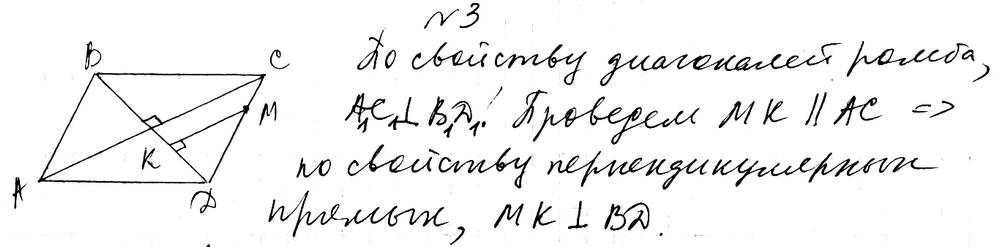 №3
По свойству диагоналей ромба,
A₁C₁⊥B₁D₁. Проведем MK || AC =>
по свойству перпендикулярных
прямых, MK ⊥ BD.
B
C
M
K
A
D